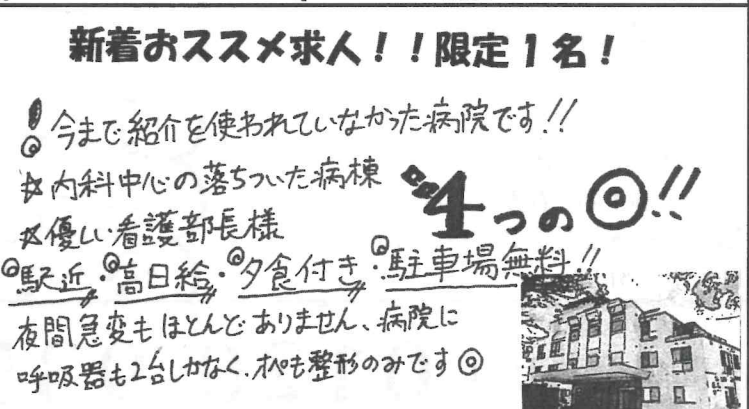 新着おススメ求人！！限定１名！
！今まで紹介を使われていなかった病院です!!
☆内科中心の落ちついた病棟
☆優しい看護部長様
4つの◎!!
◎駅近・◎高日給・◎夕食付き・◎駐車場無料!!
夜間急変もほとんどありません、病院に
呼吸器も2台しかなく、オペも整形のみです◎